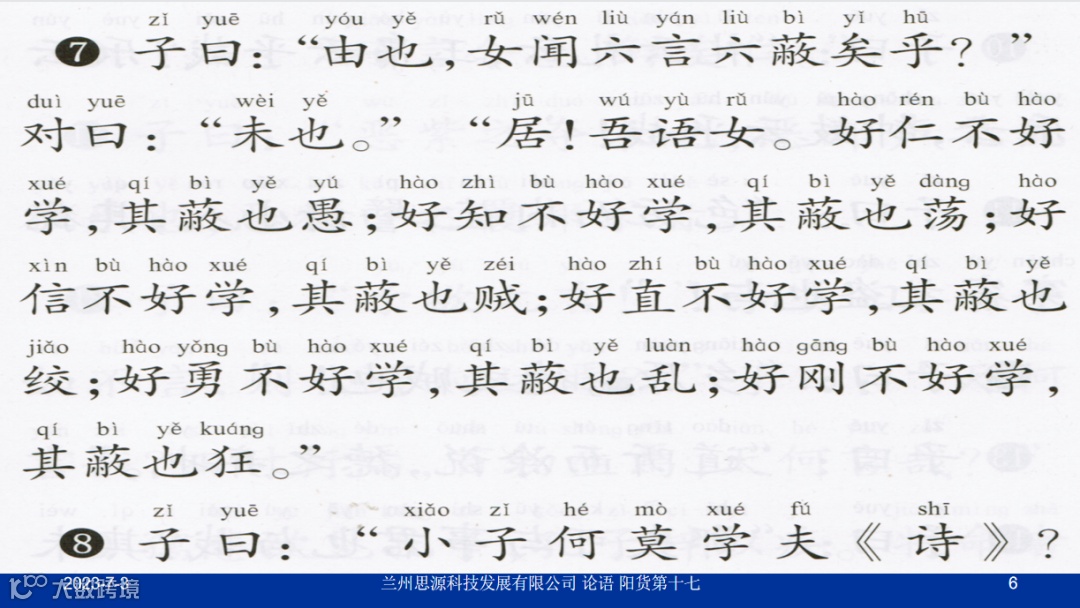 zǐ yuē yóu yě rǔ wén liù yán liù bì yǐ hū
7 子曰：“由也，女闻六言六蔽矣乎？”
duì yuē wèi yě jū wú yù rǔ hào rén bù hào
对曰：“未也。”“居！吾语女。好仁不好
xué qí bì yě yú hào zhì bù hào xué qí bì yě dàng hào
学，其蔽也愚；好知不好学，其蔽也荡；好
xìn bù hào xué qí bì yě zéi hào zhí bù hào xué qí bì yě
信不好学，其蔽也贼；好直不好学，其蔽也
jiǎo hào yǒng bù hào xué qí bì yě luàn hào gāng bù hào xué
绞；好勇不好学，其蔽也乱；好刚不好学，
qí bì yě kuáng
其蔽也狂。”
zǐ yuē xiǎo zǐ hé mò xué fú shī
8 子曰：“小子何莫学夫《诗》？
2023-7-3 兰州思源科技发展有限公司 论语 阳货第十七 6
大数跨境